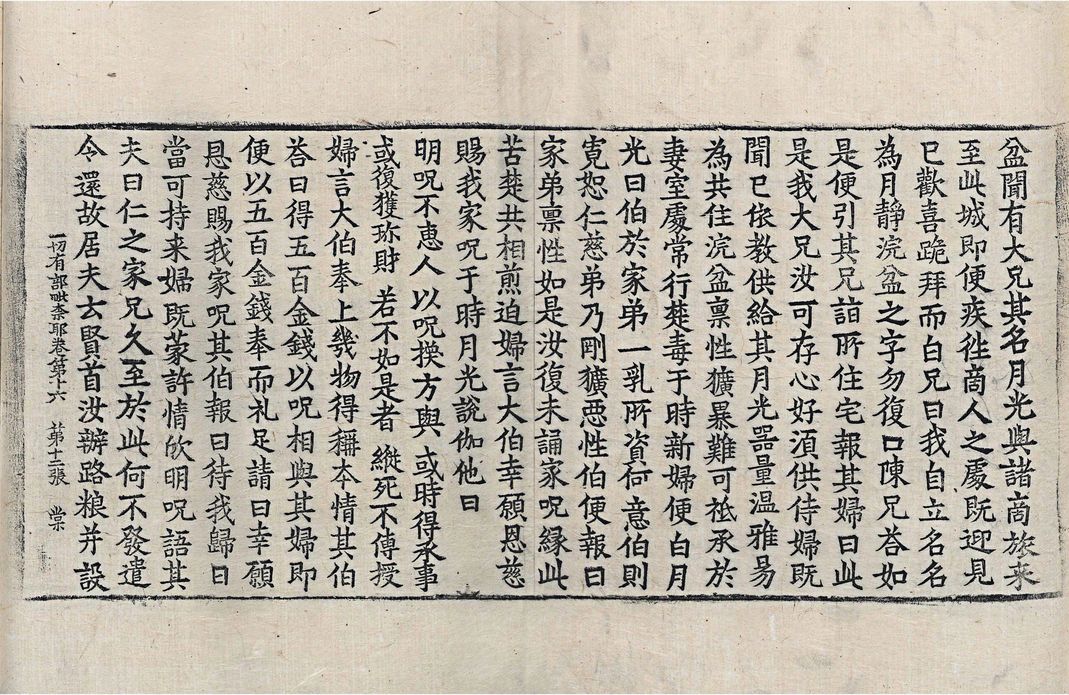 盆聞有大兄其名月光與諸商旅来
至此城即便疾徃商人之處既迎見
已歡喜跪拜而白兄曰我自立名名
為月靜浣盆之字勿復口陳兄荅如
是便引其兄詣所住宅報其婦曰此
是我大兄汝可存心好湏供侍婦既
聞已依教供給其月光器量温雅易
為共住浣盆禀性獷暴難可祗承於
妻室處常行楚毒于時新婦便白月
光曰伯於家弟一乳所資何意伯則
寛恕仁慈弟乃剛獷惡性伯便報曰
家弟禀性如是汝復未誦家呪緣此
苦楚共相煎迫婦言大伯幸願恩慈
賜我家呪于時月光說伽他曰
明呪不惠人 以呪換方與 或時得承事
或復獲珎財 若不如是者 縱死不傳授
婦言大伯奉上幾物得稱本情其伯
荅曰得五百金錢以呪相與其婦即
便以五百金錢奉而礼足請曰幸願
恩慈賜我家呪其伯報曰待我歸日
當可持来婦既蒙許情欣明呪語其
夫曰仁之家兄久至於此何不發遣
令還故居夫去賢首汝辦路粮并設
一切有部毗奈耶卷第十六 第十二張 棠